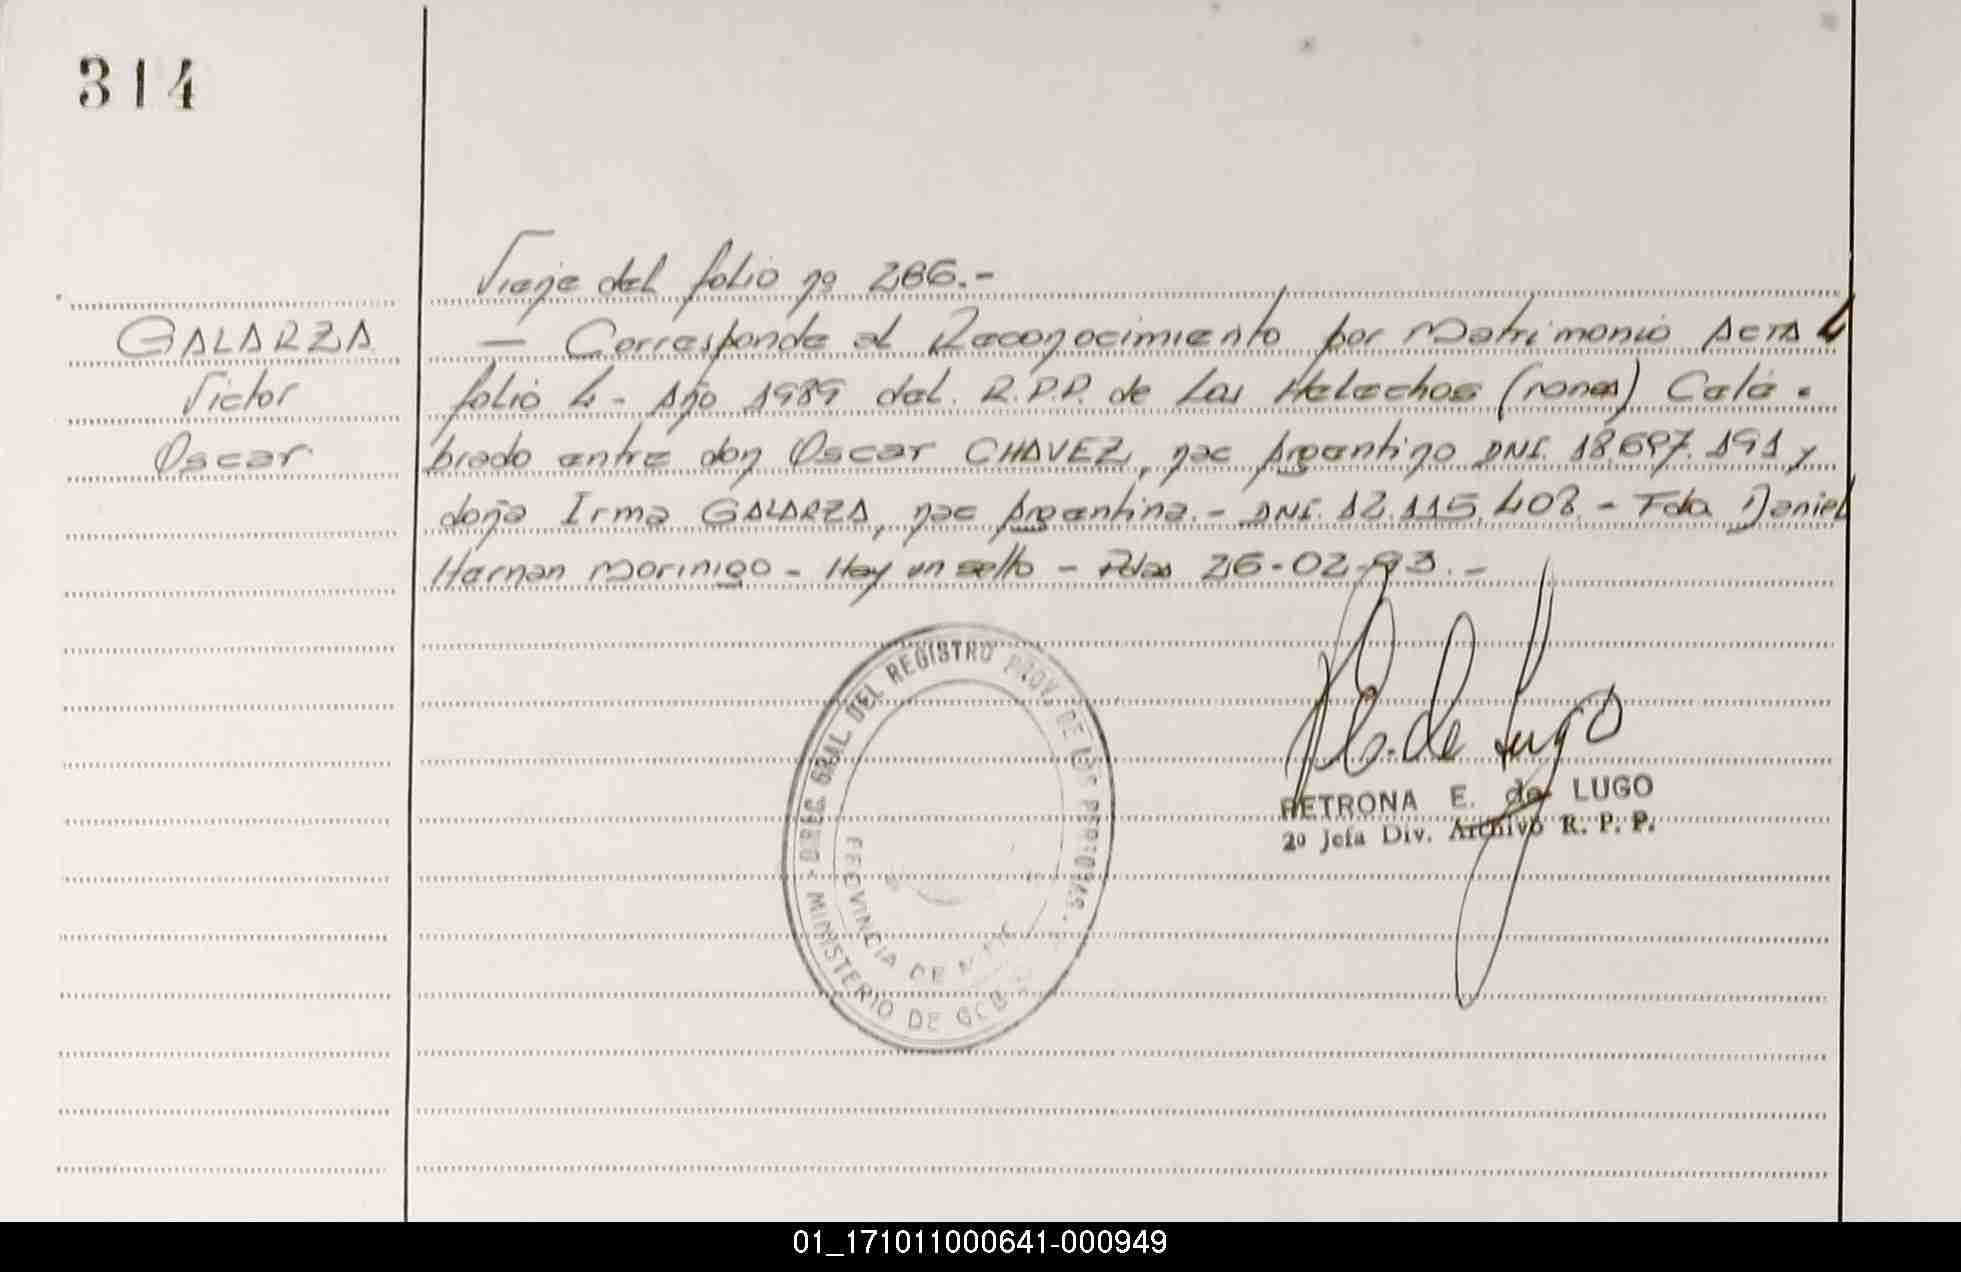 314
Viene del folio nº 286.-
GALARZA
Victor
Oscar
— Corresponde al Reconocimiento por Matrimonio Acta 4
folio 4 - Año 1989 del. R.P.P. de Los Helechos (rones) Cele-
brado entre don Oscar CHAVEZ, nac Argentino DNI. 18.697.191 y
doña Irma GALARZA, nac Argentina.- DNI. 12.115.408.- Fdo. Daniel
Hernan Morinigo - Hay un sello - Pdas 26-02-93.-
DIREC GRAL DEL REGISTRO PROV. DE LAS PERSONAS.
MINISTERIO DE GOB
PROVINCIA DE
P.E. de Lugo
PETRONA E. de LUGO
2º Jefa Div. Archivo R. P. P.
01_171011000641-000949